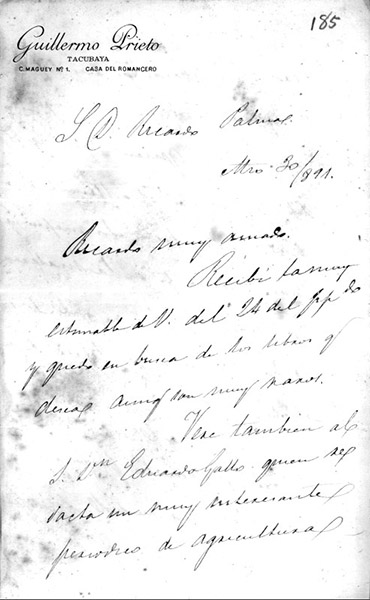 185
Guillermo Prieto
TACUBAYA
C. MAGUEY Nº 1. CASA DEL ROMANCERO
S. D. Ricardo Palma
Mro 30/891.
Ricardo muy amado.
Recibí la muy
estimable de V. del 24 del ppdo
y quedo en busca de los libros q
desea aunq son muy raros.
Vere tambien al
S. Dn Eduardo Gallo quien re
dacta un muy interesante
periodico de agricultura